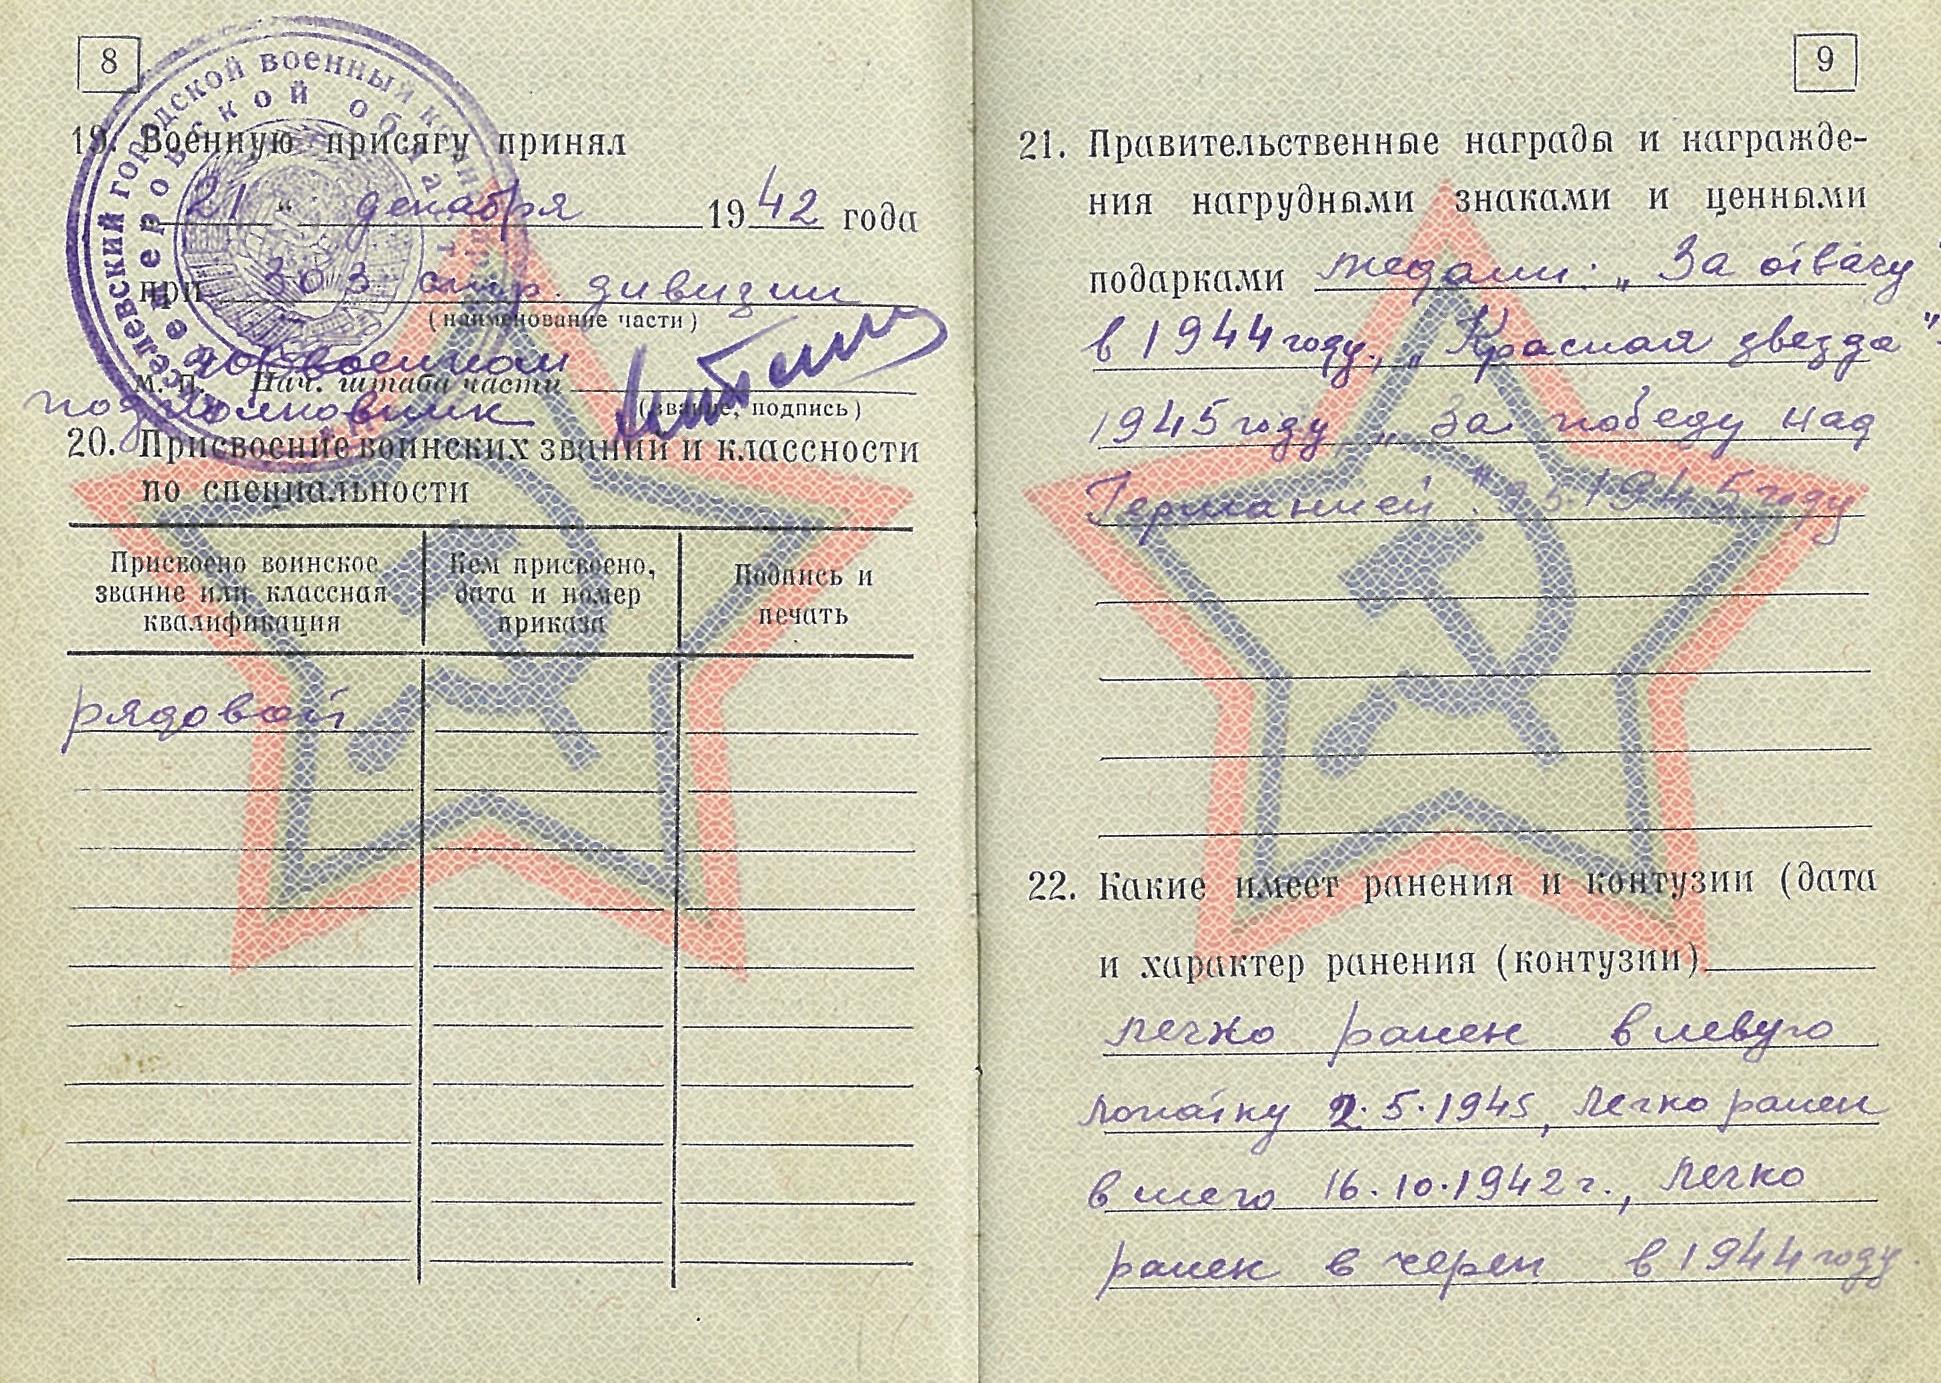 8
КИСЕЛЕВСКИЙ ГОРОДСКОЙ ВОЕННЫЙ
КЕМЕРОВСКОЙ ОБЛАСТИ
19. Военную присягу принял
21 " декабря 1942 года
при 303 стр. дивизии
(наименование части)
горвоенком
М. П. Нач. штаба части
подполковник (звание, подпись)
20. Присвоение воинских званий и классности
по специальности
Присвоено воинское звание или классная квалификация
Кем присвоено, дата и номер приказа
Подпись и печать
рядовой
9
21. Правительственные награды и награжде-
ния нагрудными знаками и ценными
подарками медали: „За отвагу"
в 1944 году, „Красная звезда"
1945 году, „За победу над
Германией" 9.5.1945 году
22. Какие имеет ранения и контузии (дата
и характер ранения (контузии)
легко ранен в левую
лопатку 2.5.1945, легко ранен
в шею 16.10.1942 г., легко
ранен в череп в 1944 году.